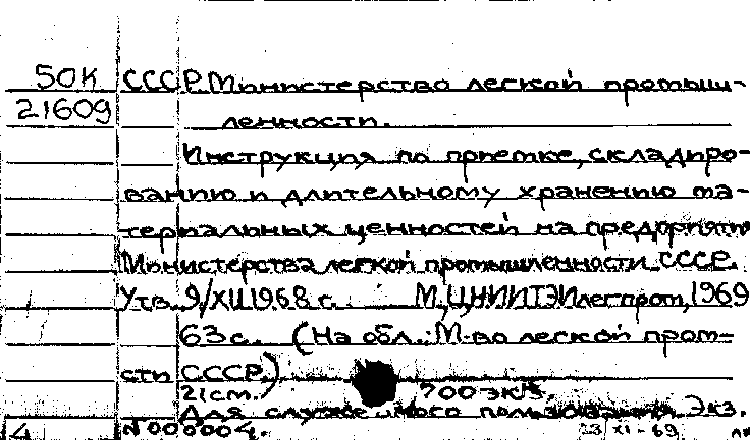 50К СССР Министерство легкой промыш-
21609 ленности.
Инструкция по приемке, складиро-
ванию и длительному хранению ма-
териальных ценностей на предприятия
Министерства легкой промышленности СССР.
Утв. 9/XII 1968 г. М, ЦНИИТЭИлегпром, 1969
63 с. (На обл.: М-во легкой пром-
сти СССР)
21 см. 700 экз.
Для служебного пользования Экз.
4 N 000004. 23/XI-69